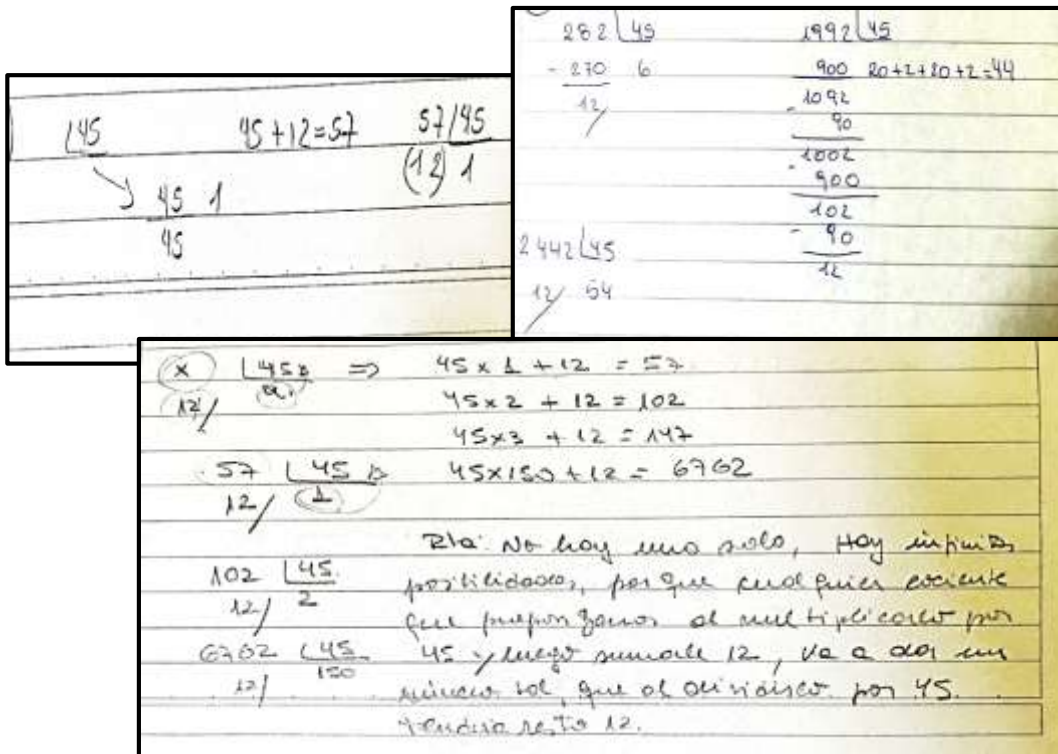 |45 45+12=57 57|45
45 1 (12) 1
45
282 |45
- 270 6
12/
2442 |45
12/ 54
1992 |45
900 20+2+20+2=44
1092
- 90
1002
- 900
102
- 90
12
x |45 ⇒ 45 x 1 + 12 = 57
12/ 45 x 2 + 12 = 102
45x3 + 12 = 147
57 |45 45x150 + 12 = 6762
12/ 1
102 |45
12/ 2
6762 |45
12/ 150
Rta: No hay uno solo, Hay infinitas
posibilidades, porque cualquier cociente
que propongamos al multiplicarlo por
45 y luego sumarle 12, va a dar un
número tal que al dividirlo por 45
tendrá resto 12.